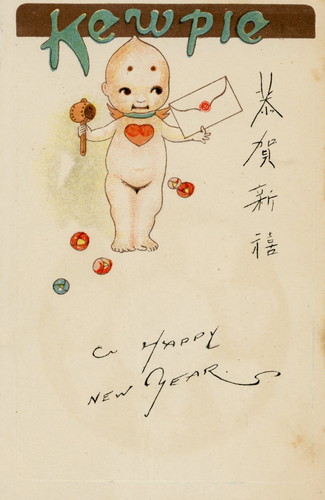 Kewpie
恭賀新禧
a HAPPY
NEW YEAR.